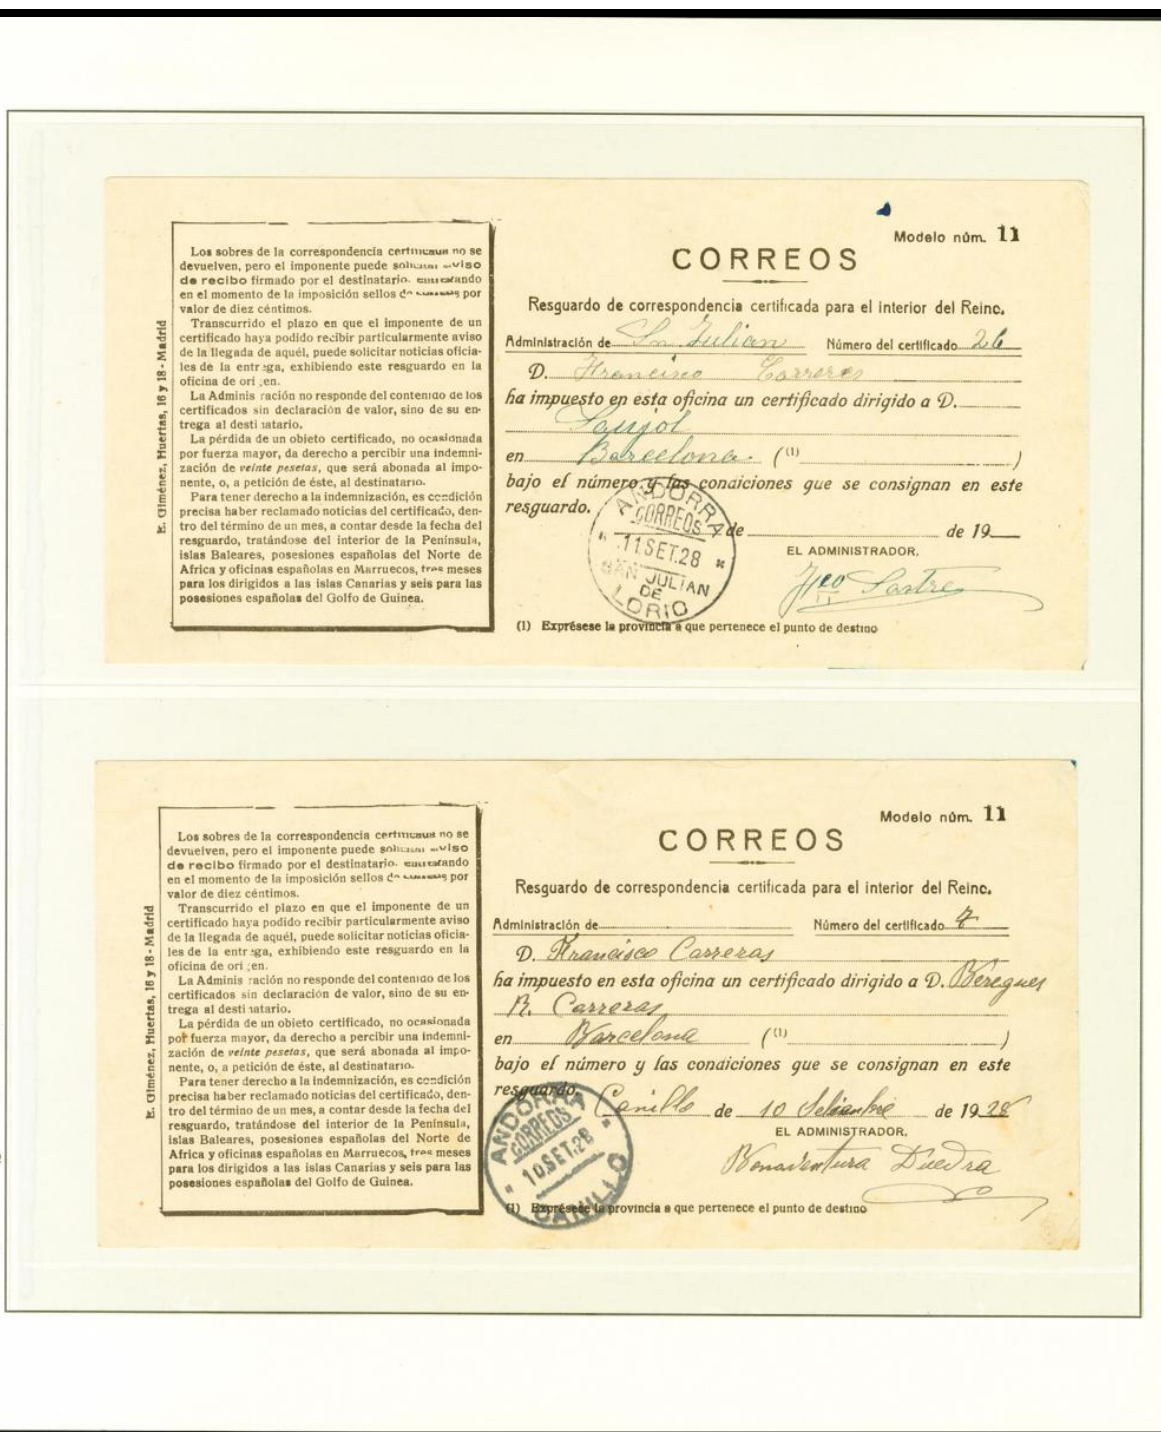 Los sobres de la correspondencia certificada no se
devuelven, pero el imponente puede solicitar aviso
de recibo firmado por el destinatario. entregando
en el momento de la imposición sellos de correos por
valor de diez céntimos.
Transcurrido el plazo en que el imponente de un
certificado haya podido recibir particularmente aviso
de la llegada de aquél, puede solicitar noticias oficia-
les de la entrega, exhibiendo este resguardo en la
oficina de ori en.
La Adminis ración no responde del contenido de los
certificados sin declaración de valor, sino de su en-
trega al desti atario.
La pérdida de un objeto certificado, no ocasionada
por fuerza mayor, da derecho a percibir una indemni-
zación de veinte pesetas, que será abonada al impo-
nente, o, a petición de éste, al destinatario.
Para tener derecho a la indemnización, es condición
precisa haber reclamado noticias del certificado, den-
tro del término de un mes, a contar desde la fecha del
resguardo, tratándose del interior de la Península,
islas Baleares, posesiones españolas del Norte de
Africa y oficinas españolas en Marruecos, tres meses
para los dirigidos a las islas Canarias y seis para las
posesiones españolas del Golfo de Guinea.
E. Giménez, Huertas, 16 y 18 - Madrid
Modelo núm. 11
CORREOS
Resguardo de correspondencia certificada para el interior del Reino.
Administración de Sn Julian Número del certificado 26
D. Francisco Carreras
ha impuesto en esta oficina un certificado dirigido a D.
en Barcelona. ((1) )
bajo el número y las condiciones que se consignan en este
resguardo.
de de 19
EL ADMINISTRADOR,
Fco Sastre
ANDORRA
CORREOS
11 SET.28
SAN JULIAN
DE
LORIO
(1) Exprésese la provincia a que pertenece el punto de destino
Los sobres de la correspondencia certificada no se
devuelven, pero el imponente puede solicitar aviso
de recibo firmado por el destinatario. entregando
en el momento de la imposición sellos de correos por
valor de diez céntimos.
Transcurrido el plazo en que el imponente de un
certificado haya podido recibir particularmente aviso
de la llegada de aquél, puede solicitar noticias oficia-
les de la entrega, exhibiendo este resguardo en la
oficina de ori en.
La Adminis ración no responde del contenido de los
certificados sin declaración de valor, sino de su en-
trega al desti atario.
La pérdida de un objeto certificado, no ocasionada
por fuerza mayor, da derecho a percibir una indemni-
zación de veinte pesetas, que será abonada al impo-
nente, o, a petición de éste, al destinatario.
Para tener derecho a la indemnización, es condición
precisa haber reclamado noticias del certificado, den-
tro del término de un mes, a contar desde la fecha del
resguardo, tratándose del interior de la Península,
islas Baleares, posesiones españolas del Norte de
Africa y oficinas españolas en Marruecos, tres meses
para los dirigidos a las islas Canarias y seis para las
posesiones españolas del Golfo de Guinea.
E. Giménez, Huertas, 16 y 18 - Madrid
Modelo núm. 11
CORREOS
Resguardo de correspondencia certificada para el interior del Reino.
Administración de Número del certificado 7
D. Francisco Carreras
ha impuesto en esta oficina un certificado dirigido a D.
R. Carreras
en Barcelona ((1) )
bajo el número y las condiciones que se consignan en este
resguardo.
Canillo de 10 Setiembre de 1928
EL ADMINISTRADOR,
Bonaventura
ANDORRA
CORREOS
10 SET.28
CANILLO
(1) Exprésese la provincia a que pertenece el punto de destino